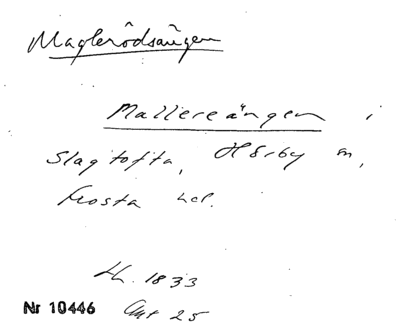 Maglerödsängen
Mallereängen i
Slagtofta, Hörby sn,
Frosta hd.
Lh. 1833
Nr 10446 Akt 25